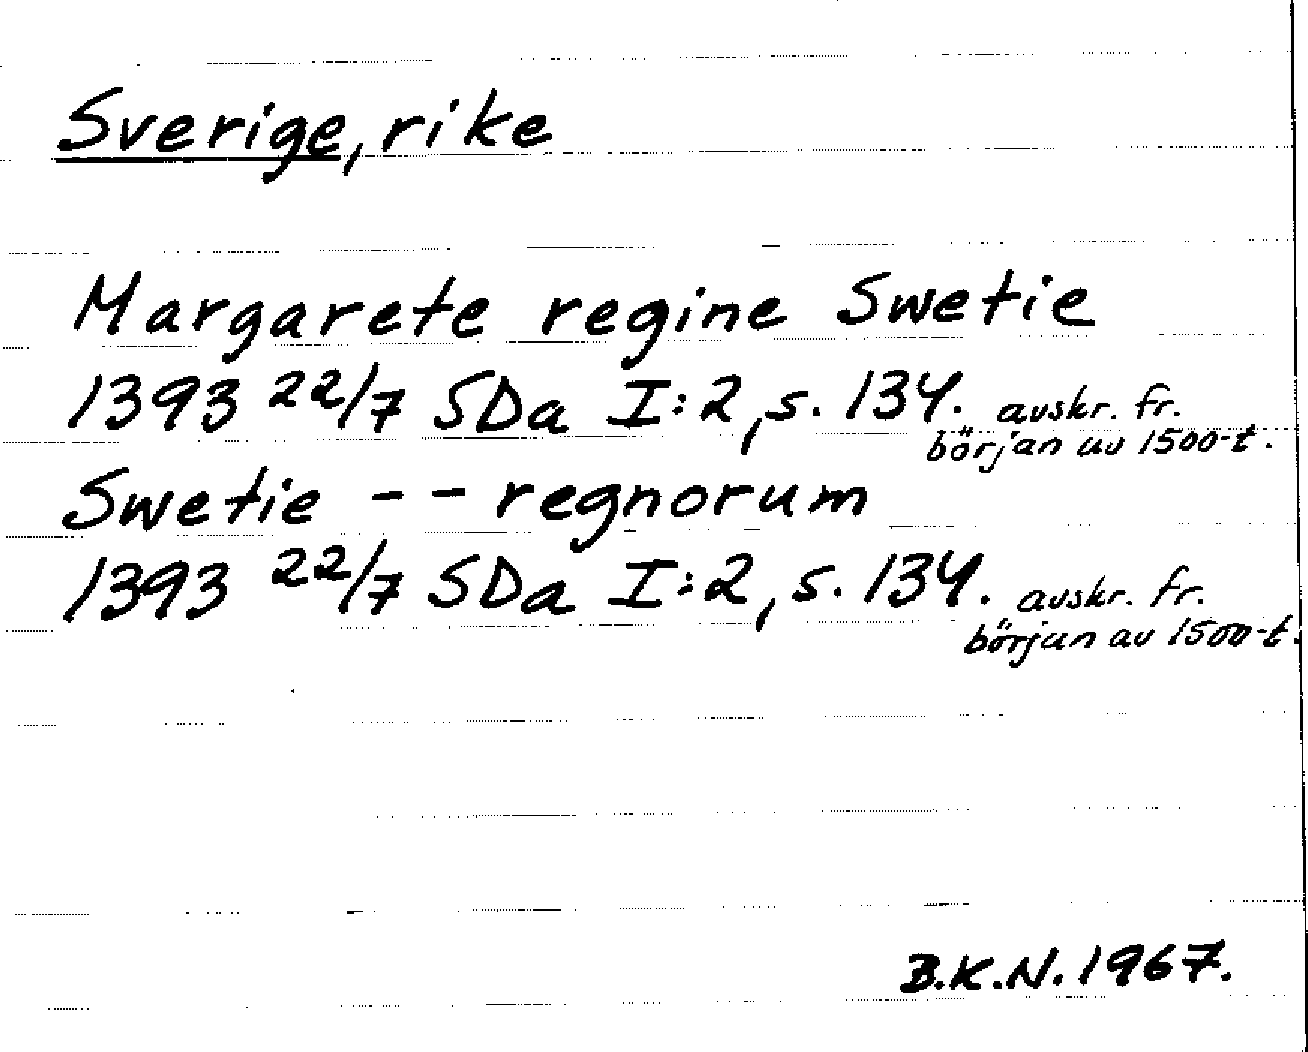 Sverige, rike
Margarete regine Swetie
1393 22/7 SDa I:2, s. 134. avskr. fr.
början av 1500-t.
Swetie -- regnorum
1393 22/7 SDa I:2, s. 134. avskr. fr.
början av 1500-t.
B.K.N. 1967.